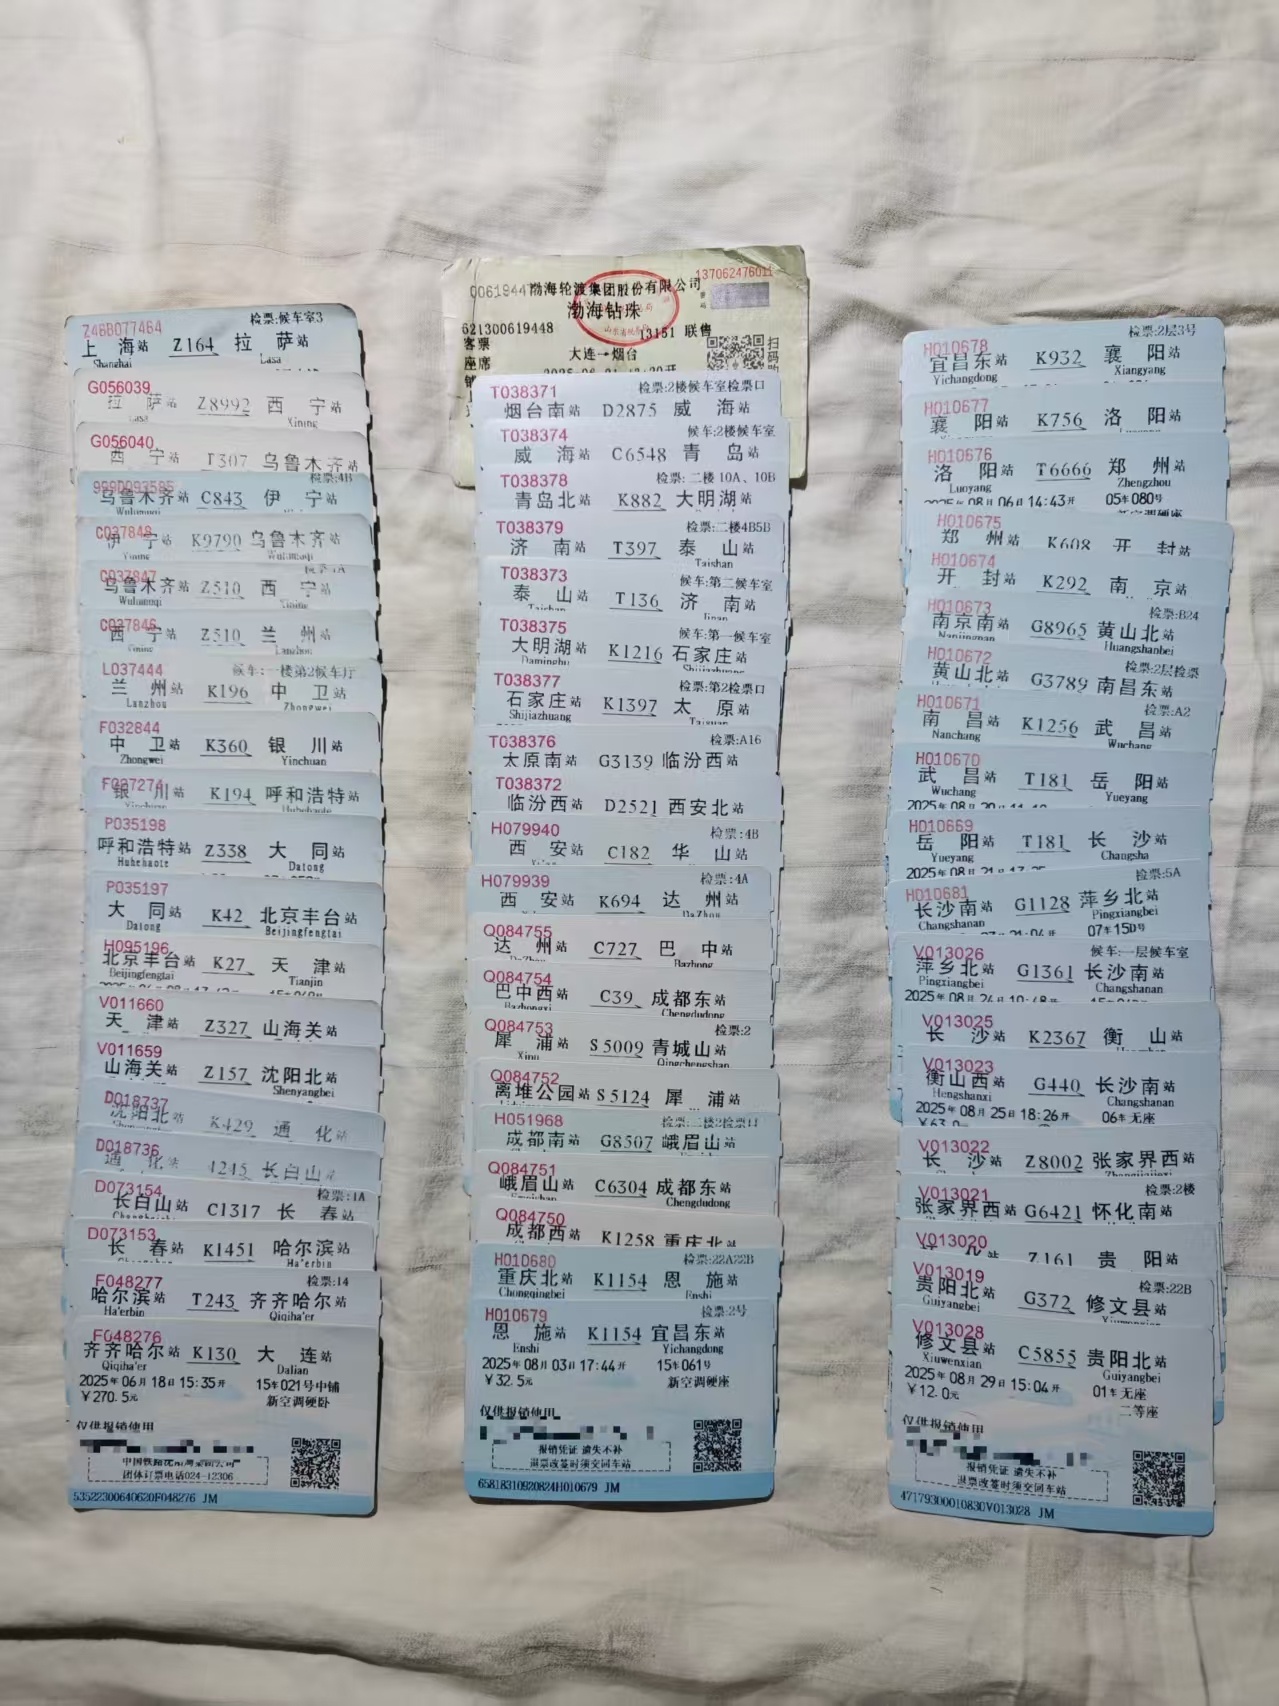 Z46B077464 检票:候车室3
上海站 Z164 拉萨站
Shanghai Lasa
G056039
拉萨站 Z8992 西宁站
Lasa Xining
G056040
西宁站 T307 乌鲁木齐站
检票:4B
乌鲁木齐站 C843 伊宁站
C037848
伊宁站 K9790 乌鲁木齐站
Yining Wulumuqi
C037847
乌鲁木齐站 Z510 西宁站
Wulumuqi Xining
C037846
西宁站 Z510 兰州站
Xining Lanzhou
L037444 候车:一楼第2候车厅
兰州站 K196 中卫站
Lanzhou Zhongwei
F032844
中卫站 K360 银川站
Zhongwei Yinchuan
F097274
银川站 K194 呼和浩特站
Yinchuan Huhehaote
P035198
呼和浩特站 Z338 大同站
Huhehaote Datong
P035197
大同站 K42 北京丰台站
Datong Beijingfengtai
H095196
北京丰台站 K27 天津站
Beijingfengtai Tianjin
V011660
天津站 Z327 山海关站
V011659
山海关站 Z157 沈阳北站
Shenyangbei
D018737
沈阳北站 K429 通化站
D018736
通化站 4245 长白山站
D073154 检票:1A
长白山站 C1317 长春站
D073153
长春站 K1451 哈尔滨站
Ha'erbin
F048277 检票:14
哈尔滨站 T243 齐齐哈尔站
Ha'erbin Qiqiha'er
F048276
齐齐哈尔站 K130 大连站
Qiqiha'er Dalian
2025年06月18日15:35开 15车021号中铺
￥270.5元 新空调硬卧
仅供报销使用
团体订票电话024-12306
53522300640620F048276 JM
0061944 渤海轮渡集团股份有限公司 137062476011
渤海钻珠
621300619448 13151 联售
客票
座席 大连→烟台
扫码
T038371 检票:2楼候车室检票口
烟台南站 D2875 威海站
T038374 候车:2楼候车室
威海站 C6548 青岛站
T038378 检票:二楼10A、10B
青岛北站 K882 大明湖站
T038379 检票:二楼4B5B
济南站 T397 泰山站
Taishan
T038373 候车:第二候车室
泰山站 T136 济南站
Taishan Jinan
T038375 候车:第一候车室
大明湖站 K1216 石家庄站
Daminghu Shijiazhuang
T038377 检票:第2检票口
石家庄站 K1397 太原站
Shijiazhuang Taiyuan
T038376 检票:A16
太原南站 G3139 临汾西站
T038372
临汾西站 D2521 西安北站
H079940 检票:4B
西安站 C182 华山站
H079939 检票:4A
西安站 K694 达州站
DaZhou
Q084755
达州站 C727 巴中站
DaZhou Bazhong
Q084754
巴中西站 C39 成都东站
Bazhongxi Chengdudong
Q084753 检票:2
犀浦站 S5009 青城山站
Xipu Qingchengshan
Q084752
离堆公园站 S5124 犀浦站
H051968 检票:二楼2检票口
成都南站 G8507 峨眉山站
Q084751
峨眉山站 C6304 成都东站
Emeishan Chengdudong
Q084750
成都西站 K1258 重庆北站
H010680 检票:22A22B
重庆北站 K1154 恩施站
Chongqingbei Enshi
H010679 检票:2号
恩施站 K1154 宜昌东站
Enshi Yichangdong
2025年08月03日17:44开 15车061号
￥32.5元 新空调硬座
仅供报销使用
报销凭证 遗失不补
退票改签时须交回车站
65818310920824H010679 JM
H010678 检票:2层3号
宜昌东站 K932 襄阳站
Yichangdong Xiangyang
H010677
襄阳站 K756 洛阳站
H010676
洛阳站 T6666 郑州站
Luoyang Zhengzhou
2025年08月06日14:43开 05车080号
新空调硬座
H010675
郑州站 K608 开封站
H010674
开封站 K292 南京站
H010673 检票:B24
南京南站 G8965 黄山北站
Nanjingnan Huangshanbei
H010672 检票:2层检票
黄山北站 G3789 南昌东站
H010671 检票:A2
南昌站 K1256 武昌站
Nanchang Wuchang
H010670
武昌站 T181 岳阳站
Wuchang Yueyang
H010669
岳阳站 T181 长沙站
Yueyang Changsha
H010681 检票:5A
长沙南站 G1128 萍乡北站
Changshanan Pingxiangbei
07车15D号
V013026 候车:一层候车室
萍乡北站 G1361 长沙南站
Pingxiangbei Changshanan
2025年08月24日10:48开
V013025
长沙站 K2367 衡山站
V013023
衡山西站 G440 长沙南站
Hengshanxi Changshanan
2025年08月25日18:26开 06车无座
￥63.0元
V013022
长沙站 Z8002 张家界西站
V013021 检票:2楼
张家界西站 G6421 怀化南站
V013020
怀化站 Z161 贵阳站
V013019 检票:22B
贵阳北站 G372 修文县站
Guiyangbei Xiuwenxian
V013028
修文县站 C5855 贵阳北站
Xiuwenxian Guiyangbei
2025年08月29日15:04开 01车无座
￥12.0元 二等座
仅供报销使用
报销凭证 遗失不补
退票改签时须交回车站
47179300010830V013028 JM